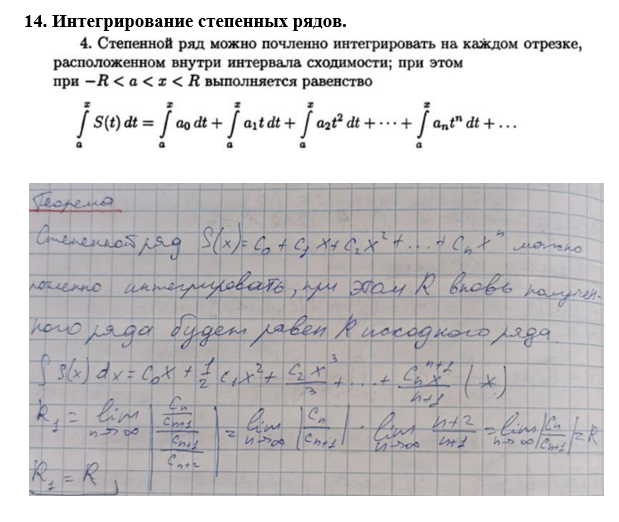 14. Интегрирование степенных рядов.
4. Степенной ряд можно почленно интегрировать на каждом отрезке,
расположенном внутри интервала сходимости; при этом
при −R < a < x < R выполняется равенство
∫ₐˣ S(t) dt = ∫ₐˣ a₀ dt + ∫ₐˣ a₁t dt + ∫ₐˣ a₂t² dt + ⋯ + ∫ₐˣ aₙtⁿ dt + …
Теорема
Степенной ряд S(x) = C₀ + C₁x + C₂x² + … + Cₙxⁿ можно
почленно интегрировать, при этом R вновь получен-
ного ряда будет равен R исходного ряда.
∫ S(x) dx = C₀x + 1/2 C₁x² + C₂x³/3 + … + Cₙxⁿ⁺¹/n+1 (x)
R₁ = lim n→∞ |(Cₙ/Cₙ₊₁)/(Cₙ₊₁/Cₙ₊₂)| = lim n→∞ |Cₙ/Cₙ₊₁| · lim n→∞ n+2/n+1 = lim n→∞ |Cₙ/Cₙ₊₁| = R
R₁ = R